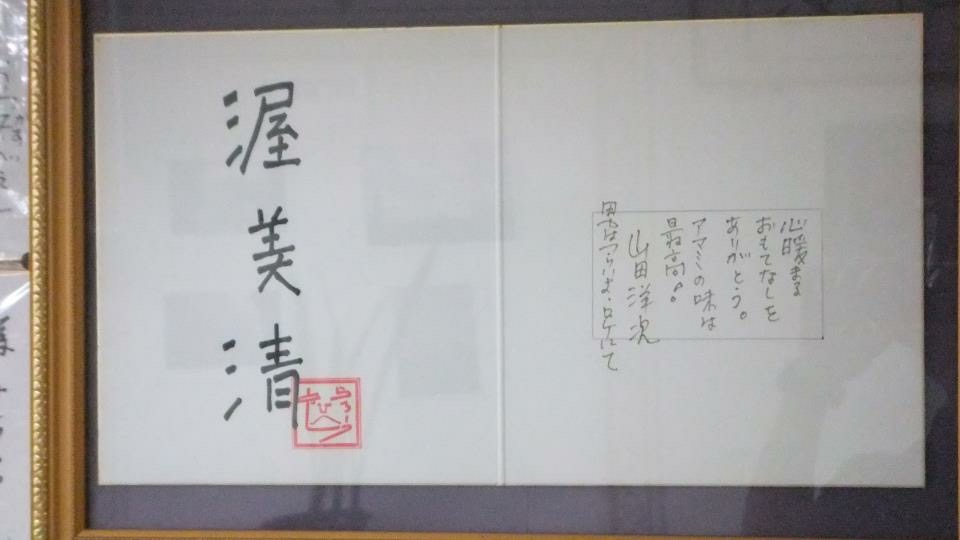 心暖まる
おもてなしを
ありがとう。
アマミの味は
最高。
山田洋次
男はつらいよ・ロケにて
渥美清